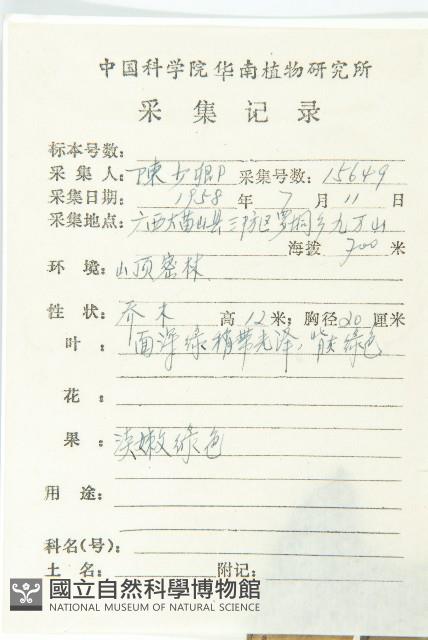 中国科学院华南植物研究所
采集记录
标本号数:
采集人: 陳少卿 采集号数: 15649
采集日期: 1958 年 7 月 11 日
采集地点: 广西大苗山县三防区罗洞乡九万山
海拨 700 米
环境: 山顶密林
性状: 乔木 高 12 米; 胸径 20 厘米
叶: 面深绿稍带光泽, 背灰绿色
花:
果: 淡嫩绿色
用途:
科名(号):
土名: 附记:
國立自然科學博物館
NATIONAL MUSEUM OF NATURAL SCIENCE